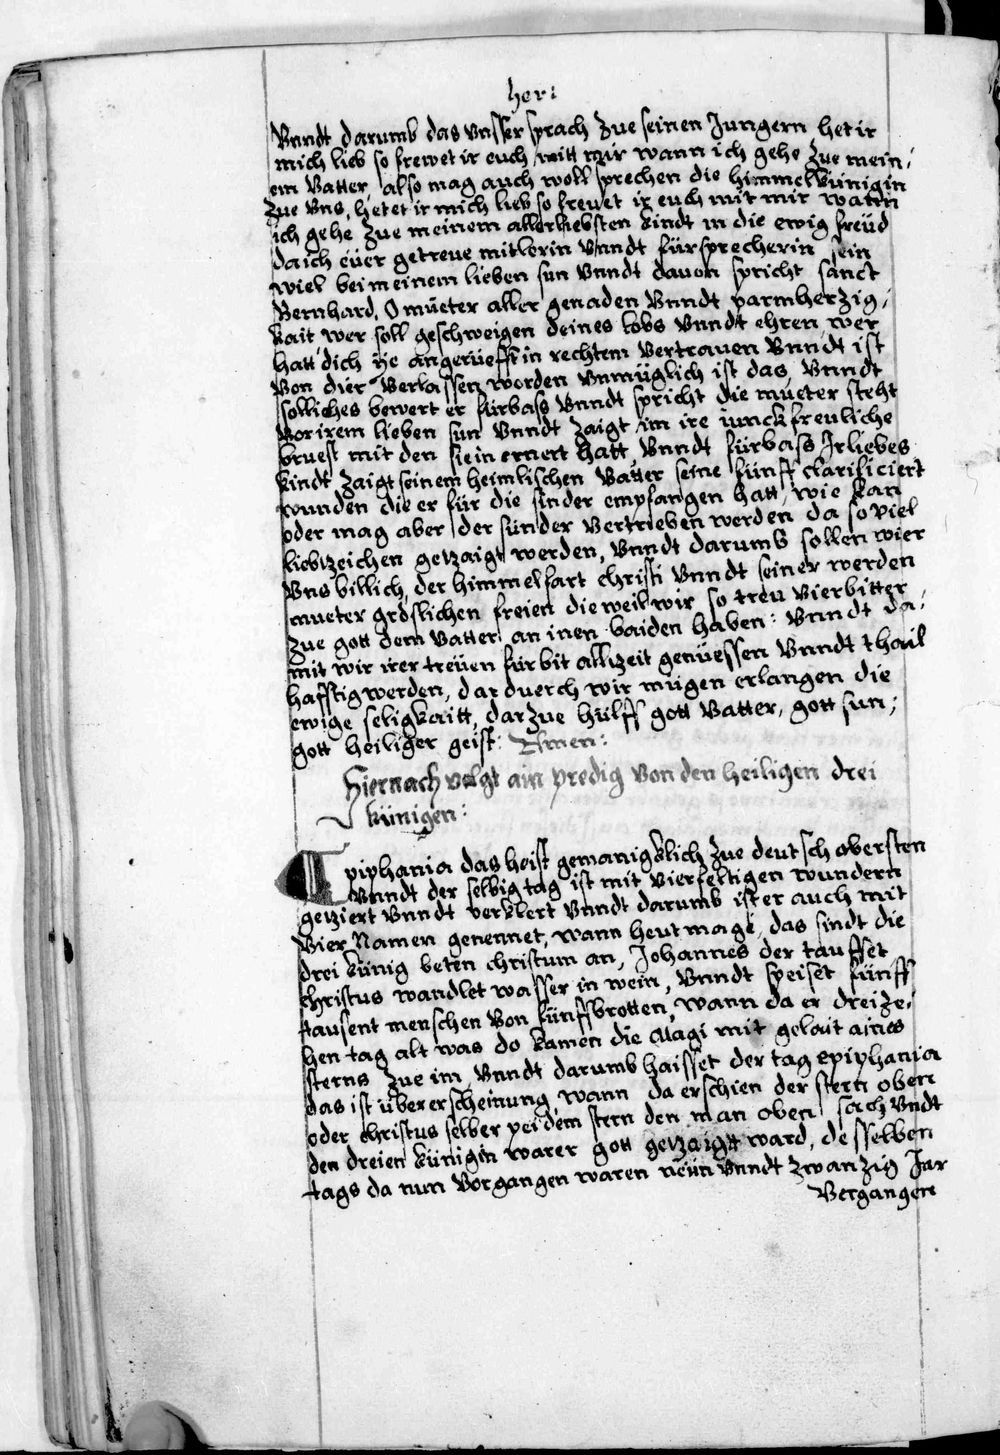 her:
Vnndt darumb das vnsser sprach zue seinen Jungern het ir
mich lieb so frewet ir euch mitt mir wann ich gehe zue mein,
em Vatter, also mag auch woll sprechen die himmelkünigin
zue vns, hetet ir mich lieb so freuet ir euch mit mir wann
ich gehe zue meinem allerliebsten kindt in die ewig freüd
da ich eüer getreue mitlerin vnndt fürsprecherin sein
wiel bei meinem lieben sun vnndt davon spricht sanct
Bernhard, O müeter aller genaden vnndt parmherzig,
kait wer soll geschweigen deines lobs vnndt ehren, wer
hatt dich ÿe angerüefft in rechtem vertrauen vnndt ist
von dier verlassen worden vnmüglich ist das, vnndt
solliches bewert er fürbass vnndt spricht die müeter steht
vor irem lieben sun vnndt zaigt im ire junckfreuliche
bruest mit den sie in ernert hatt vnndt fürbass Ir liebes
kindt zaigt seinem heimlischen Vatter seine fünff clarificiert
wunden die er für die sünder empfangen hatt, wie kan
oder mag aber der sünder vertrieben werden da so viel
liebtzeichen getzaigt werden, vnndt darumb sollen wier
vns billich, der himmelfart christi vnndt seiner werden
mueter gröslichen freien die weil wir so treu vierbitter
zue gott dem vatter an inen baiden haben: vnndt da,
mit wir irer treüen fürbit allzeit genüessen vnndt thail
hafftig werden, dar duerch wir mügen erlangen die
ewige seligkaitt, darzue hülff gott Vatter, gott sun,
gott heiliger geist: Amen:
Hiernach volgt ain predig von den heiligen drei
künigen:
Epiphania das heist gemanigklich zue deutsch obersten
vnndt der selbig tag ist mit vierfeltigen wundern
getziert vnndt verklert vnndt darumb ist er auch mit
vier Namen genennet, wann heut mage, das sindt die
drei künig beten christum an, Johannes der tauffet,
christus wandlet wasser in wein, vnndt speiset fünff
tausent menschen von fünff brotten, wann da er dreize,
hen tag alt was do kamen die Magi mit gelait aines
sterns zue im, vnndt darumb haisset der tag epiphania
das ist über erscheinung, wann da erschien der stern oben
oder christus selber pei dem stern den man oben sach vndt
den dreien künigin warer gott getzaigtt ward, desselben
tags da nun vorgangen waren neün vnndt zwanzig Jar
Vergangen